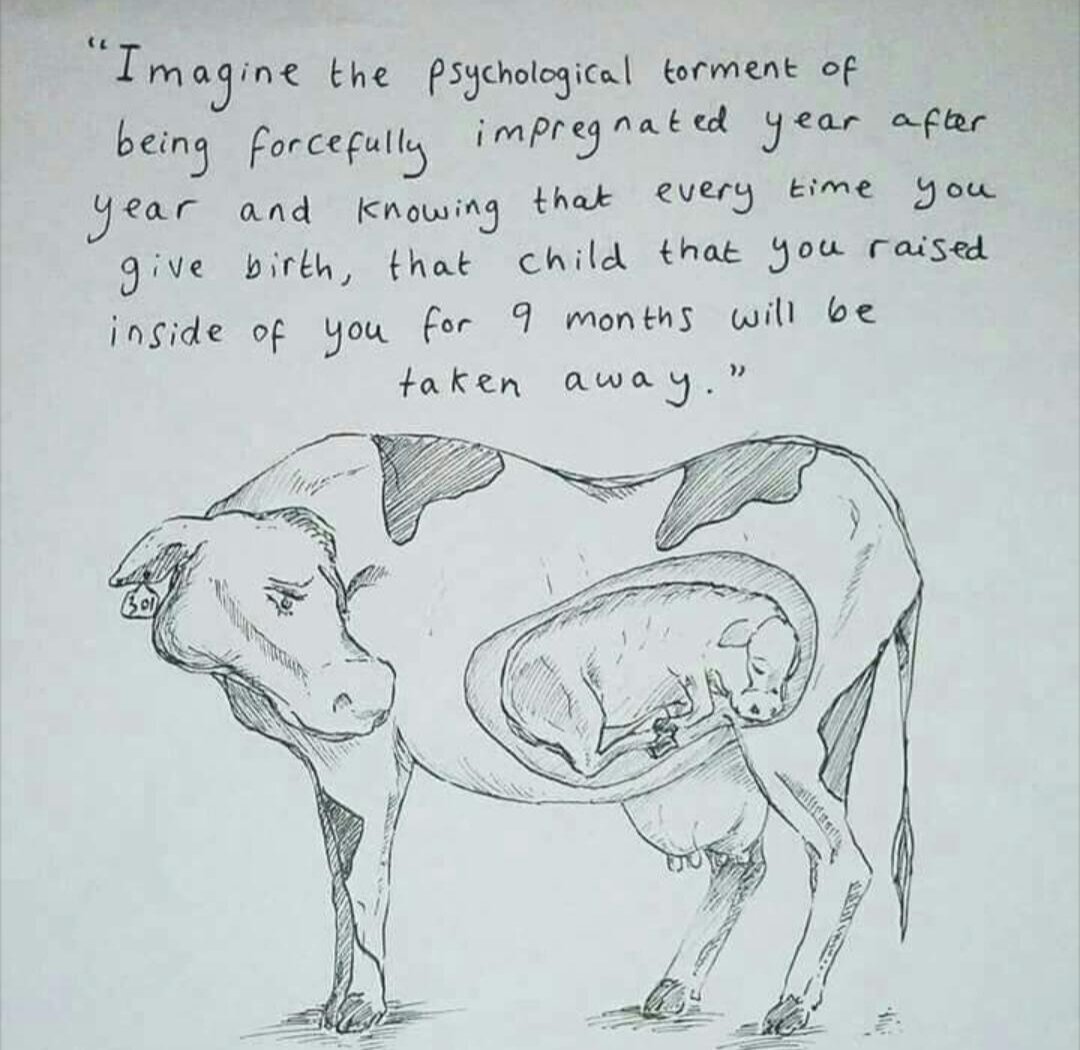 “Imagine the psychological torment of
being forcefully impregnated year after
year and knowing that every time you
give birth, that child that you raised
inside of you for 9 months will be
taken away.”
301